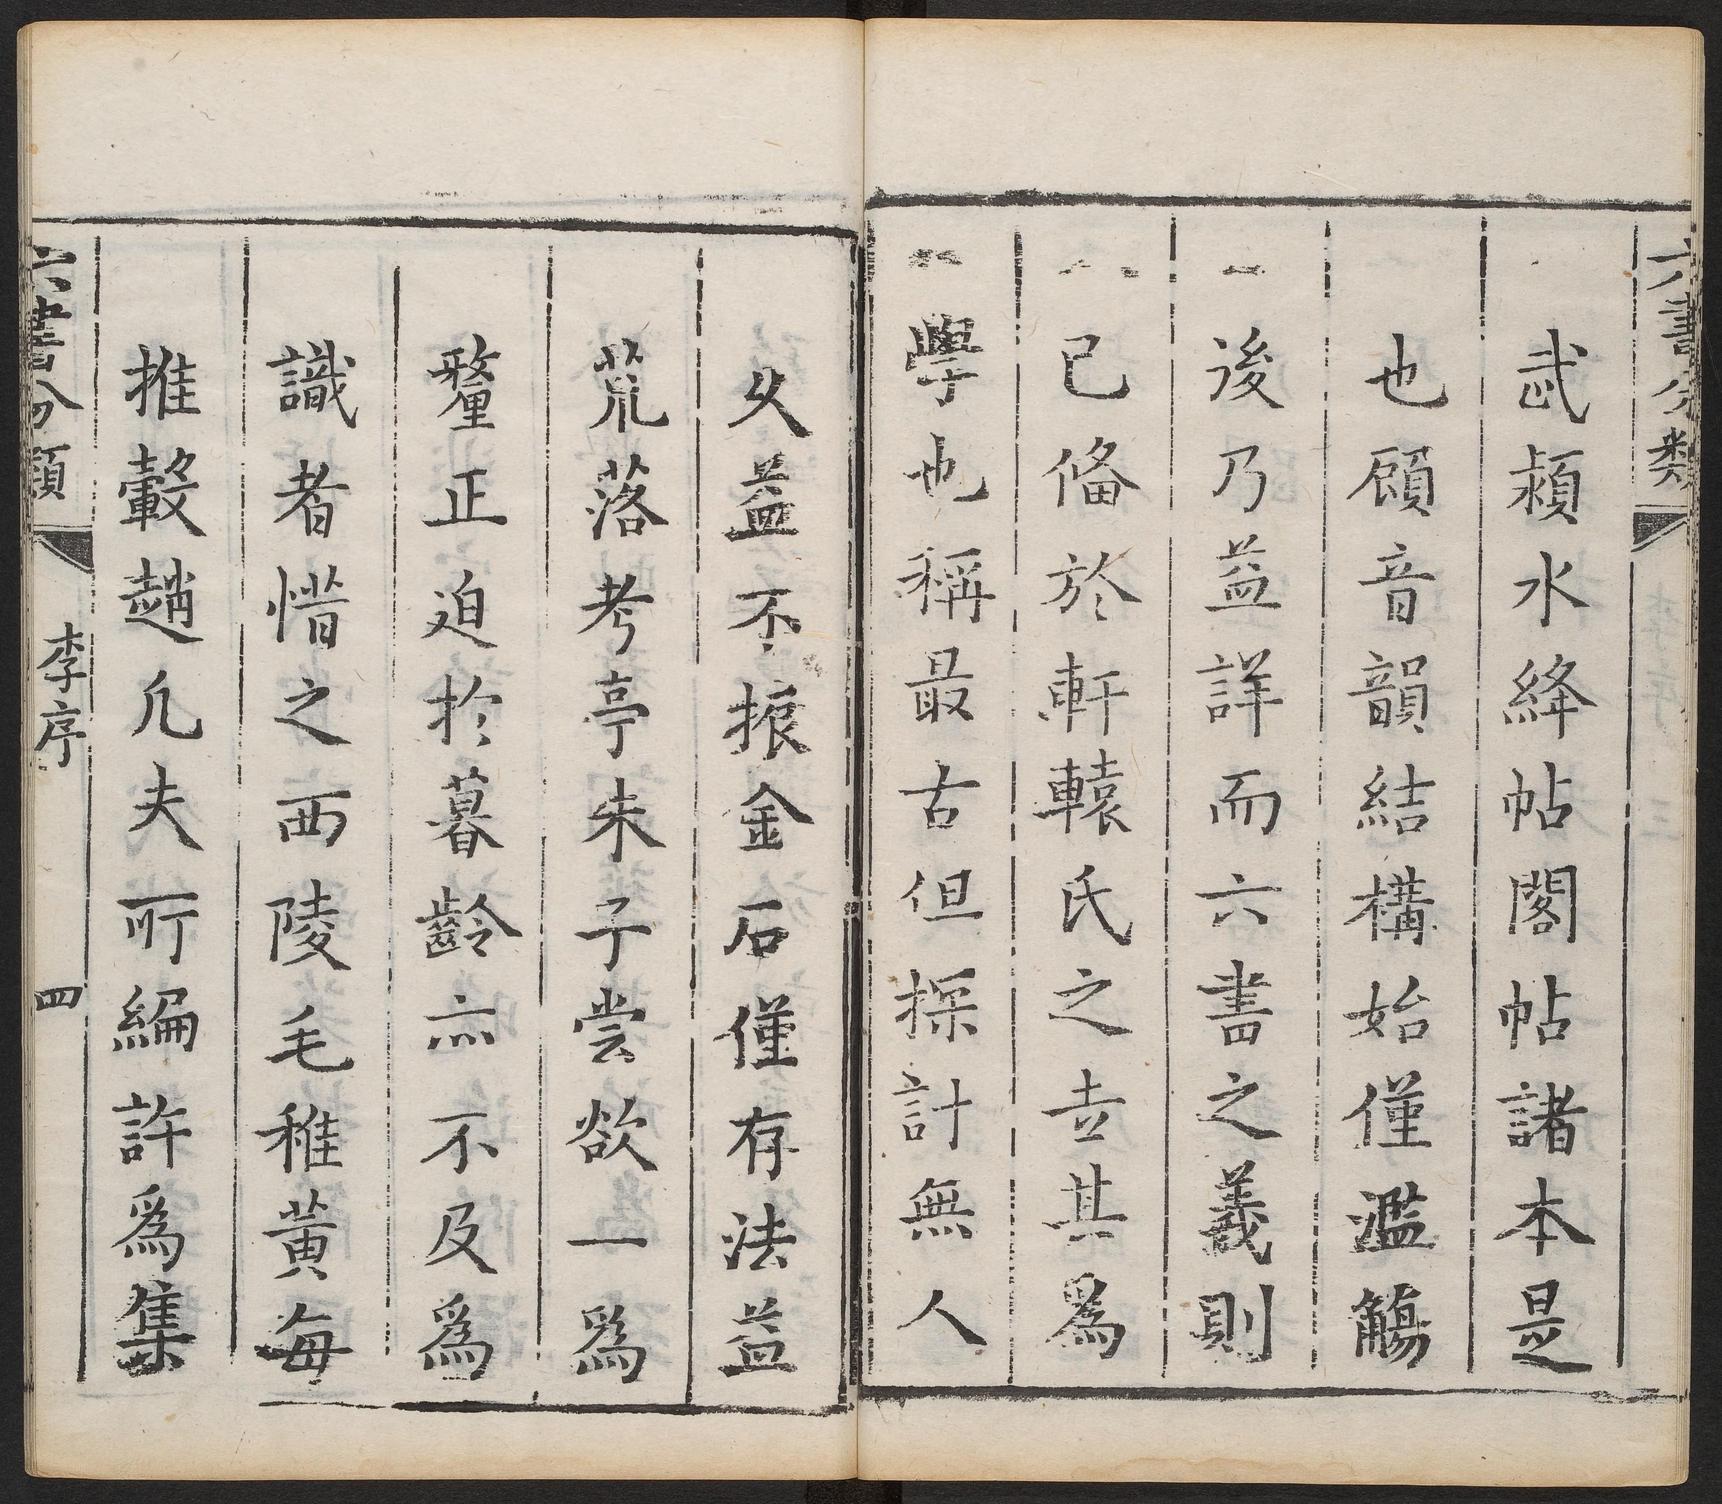 六書分類
武潁水絳帖閣帖諸本是
也顧音韻結構始僅濫觴
後乃益詳而六書之義則
已俻於軒轅氏之卋其爲
學也稱最古但探計無人
久益不振金石僅存法益
荒落考亭朱子尝欲一爲
釐正迫於暮齡亦不及爲
識者惜之西陵毛稚黄每
推轂趙凢夫所編許爲集
六書分類 李序 四